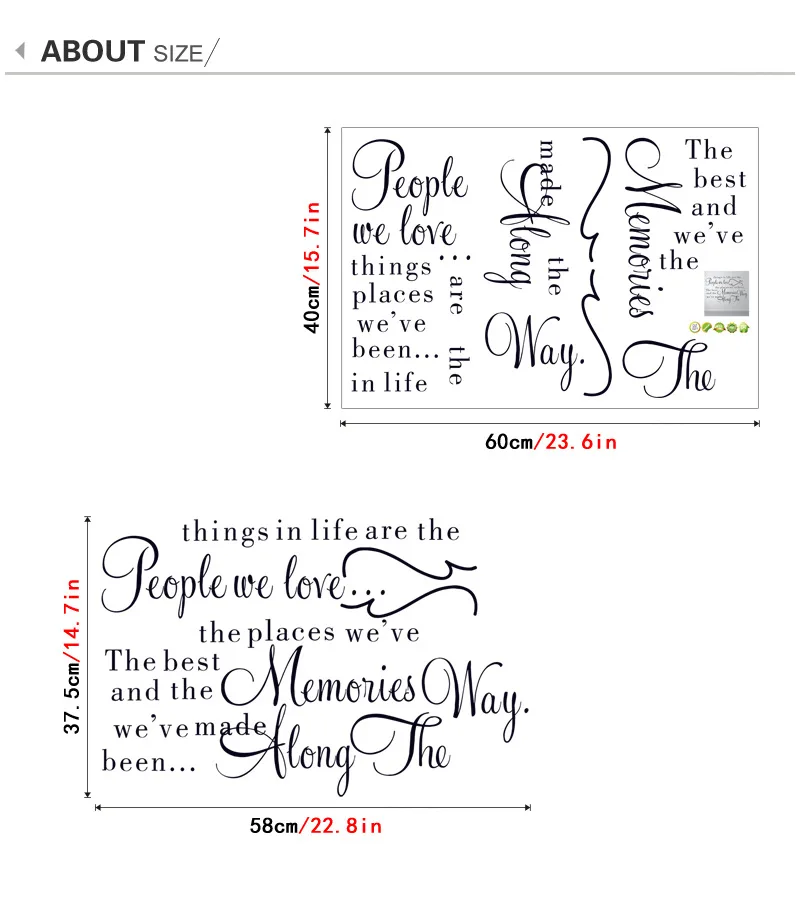 ABOUT SIZE/
40cm/15.7in
People
we love...
things
places
we've
been...
in life
are the
made the
Along
Way.
Memories
The
best
and
we've
the
The
60cm/23.6in
37.5cm/14.7in
things in life are the
People we love...
the places we've
The best
and the Memories Way.
we've made Along The
been...
58cm/22.8in